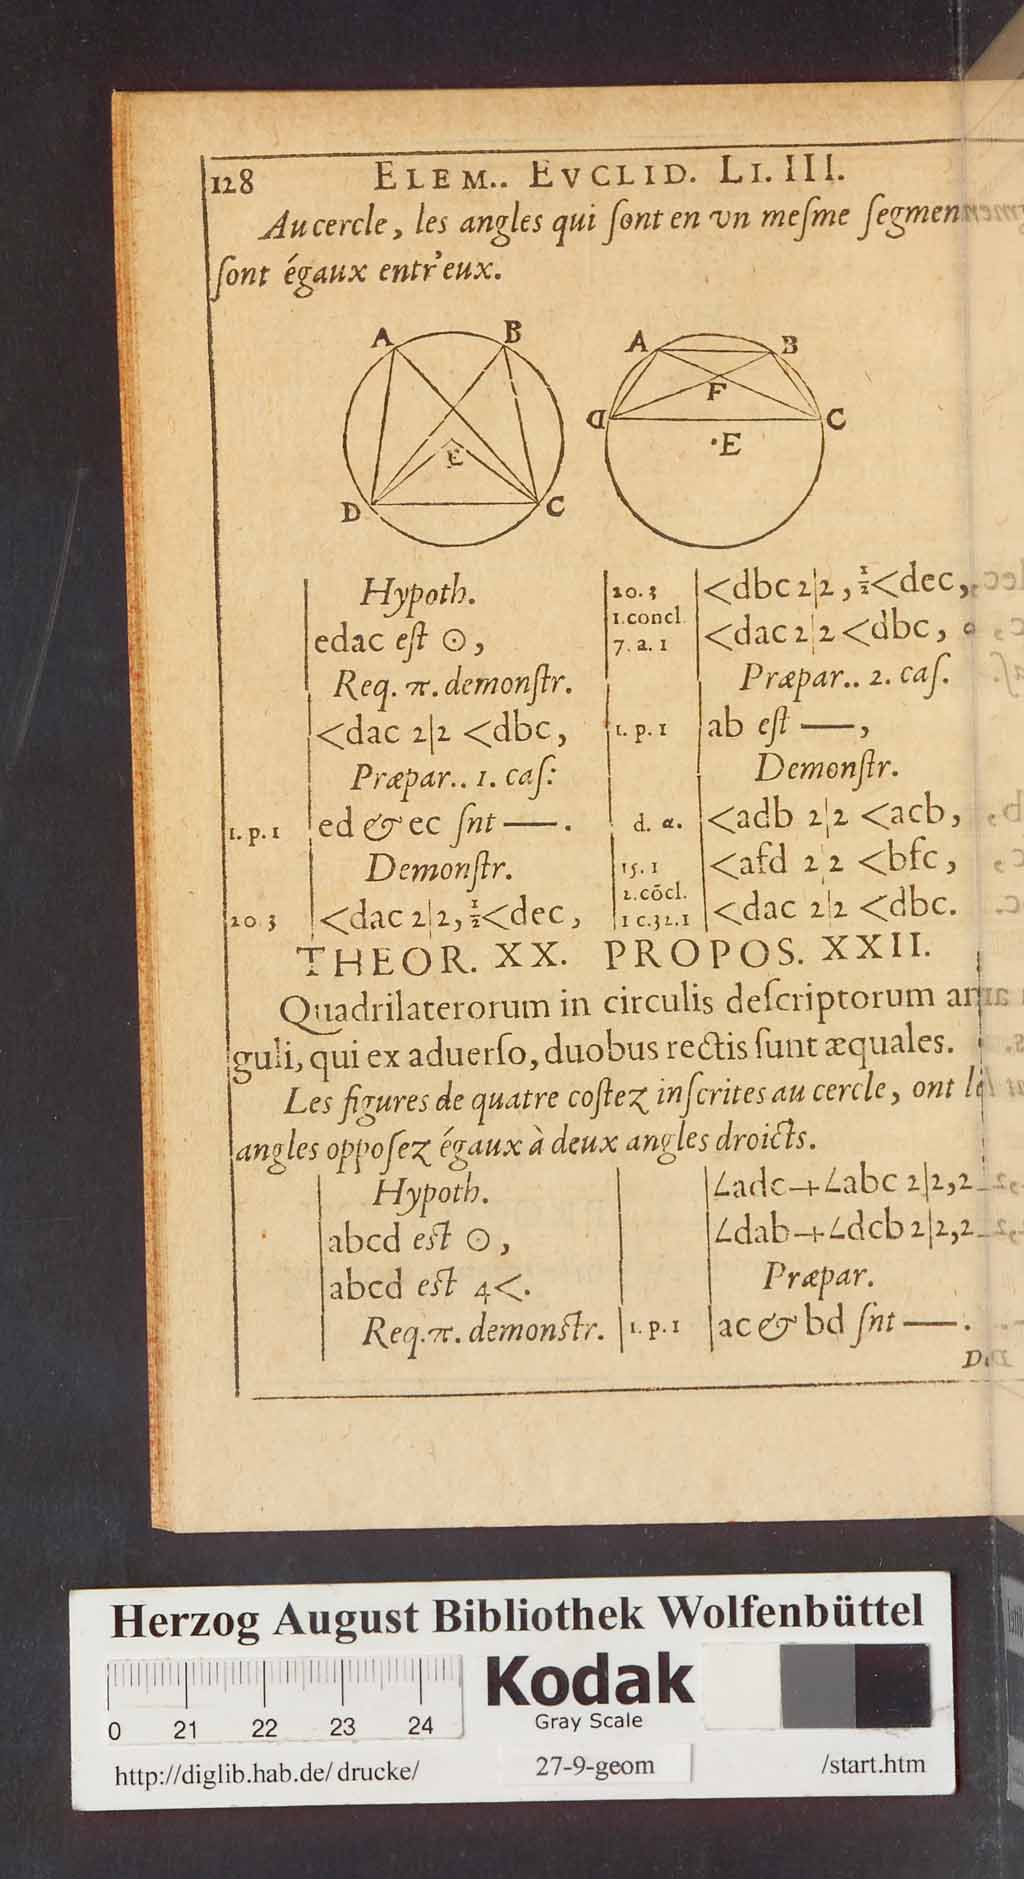 128 ELEM.. EVCLID. LI. III.
Au cercle, les angles qui ſont en vn meſme ſegmen
ſont égaux entr'eux.
A B
E
D C
A B
F
D C
E
Hypoth.
edac eſt ⊙,
Req. π. demonſtr.
<dac 2|2 <dbc,
Præpar.. 1. caſ:
1. p. 1 ed & ec ſnt —.
Demonſtr.
20. 3 <dac 2|2, ½<dec,
20. 3 <dbc 2|2, ½<dec,
1. concl.
7. a. 1 <dac 2|2 <dbc,
Præpar.. 2. caſ.
1. p. 1 ab eſt —,
Demonſtr.
d. α. <adb 2|2 <acb,
15. 1 <afd 2|2 <bfc,
2. cōcl.
1 c.32.1 <dac 2|2 <dbc.
THEOR. XX. PROPOS. XXII.
Quadrilaterorum in circulis deſcriptorum an
guli, qui ex aduerſo, duobus rectis ſunt æquales.
Les figures de quatre coſtez inſcrites au cercle, ont
angles oppoſez égaux à deux angles droicts.
Hypoth.
abcd est ⊙,
abcd est 4<.
Req. π. demonstr.
∠adc + ∠abc 2|2, 2
∠dab + ∠dcb 2|2, 2
Præpar.
1. p. 1 ac & bd ſnt —.
Herzog August Bibliothek Wolfenbüttel
Kodak
Gray Scale
0 21 22 23 24
http://diglib.hab.de/drucke/ 27-9-geom /start.htm